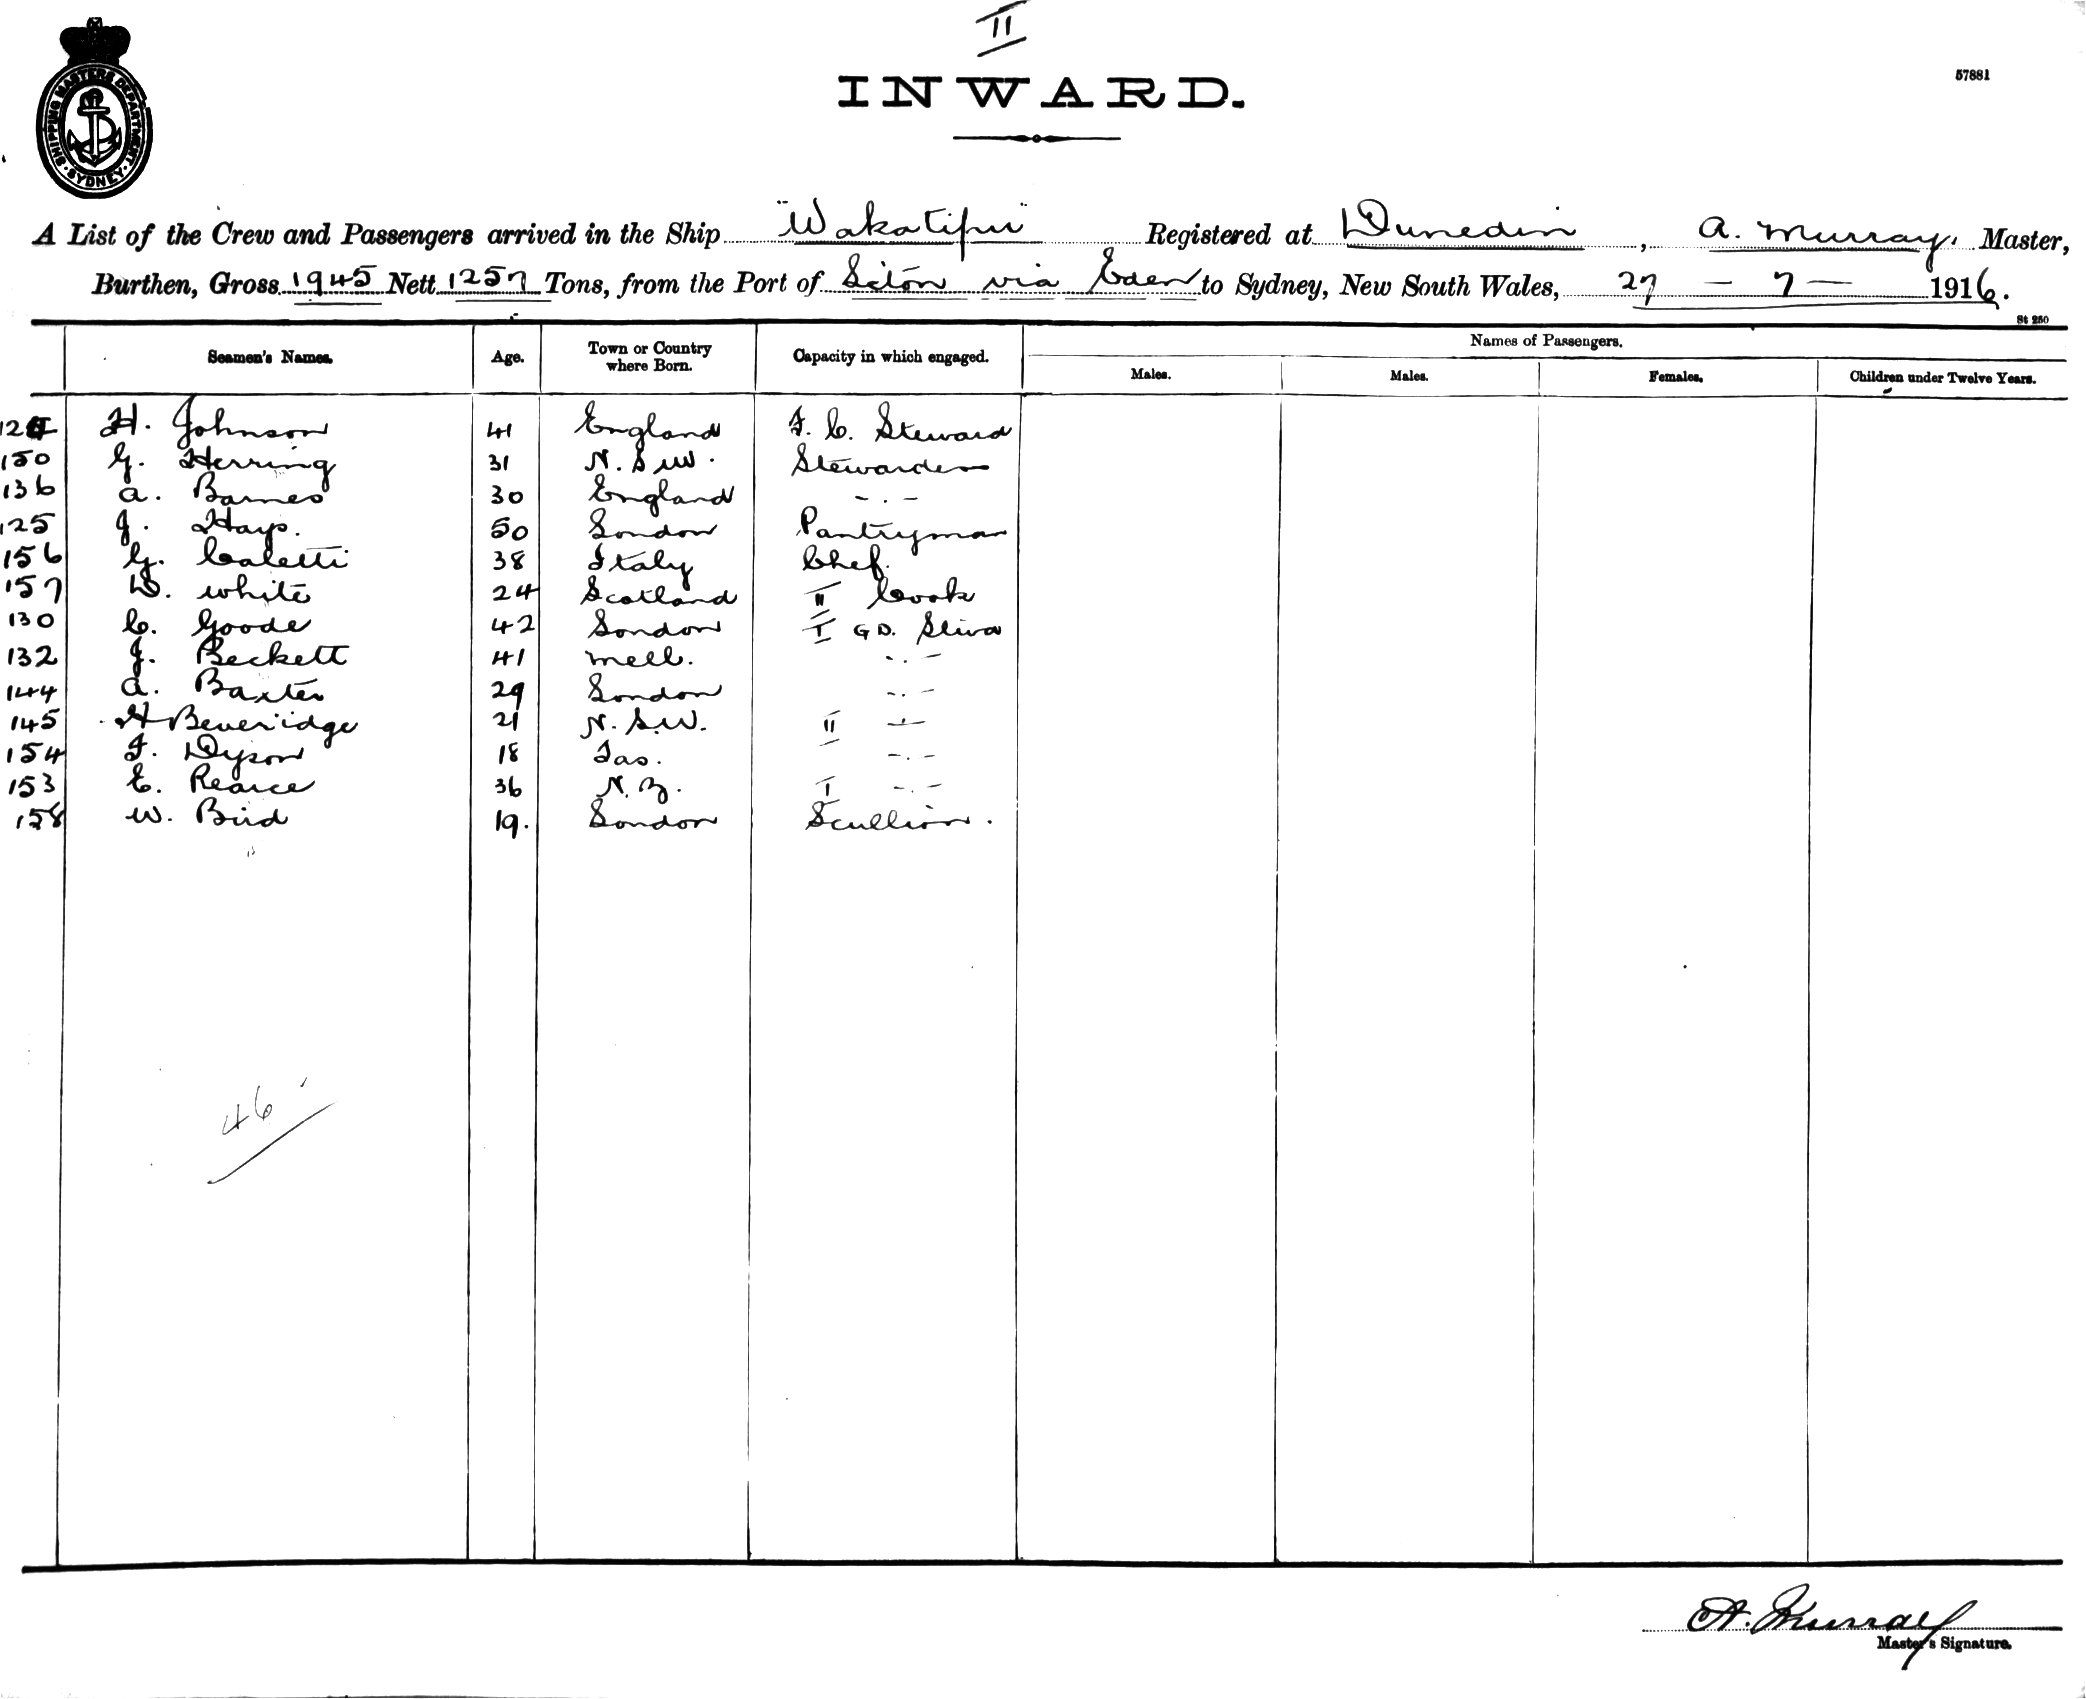 II
INWARD.
57881
SHIPPING MASTERS DEPARTMENT · SYDNEY ·
A List of the Crew and Passengers arrived in the Ship "Wakatipu" Registered at Dunedin, A. Murray. Master,
Burthen, Gross 1945 Nett 1257 Tons, from the Port of via Eden to Sydney, New South Wales, 27 - 7 - 1916.
St 250
Seamen's Names. Age. Town or Country where Born. Capacity in which engaged. Names of Passengers.
Males. Males. Females. Children under Twelve Years.
H. Johnson 41 England F. C. Steward
150 G. Herring 31 N. S W. Stewardess
136 A. Barnes 30 England - . -
125 J. Hays. 50 London Pantryman
156 G. Caletti 38 Italy Chef.
157 D. White 24 Scotland II Cook
130 C. Goode 42 London I GD. Stwd
132 J. Beckett 41 Melb. - . -
144 A. Baxter 29 London - . -
145 H Beveridge 21 N. S.W. II - . -
154 F. Dyson 18 Tas. - . -
153 E. Pearce 36 N. Z. I - . -
158 W. Bird 19. London Scullion.
46
A. Murray
Master's Signature.